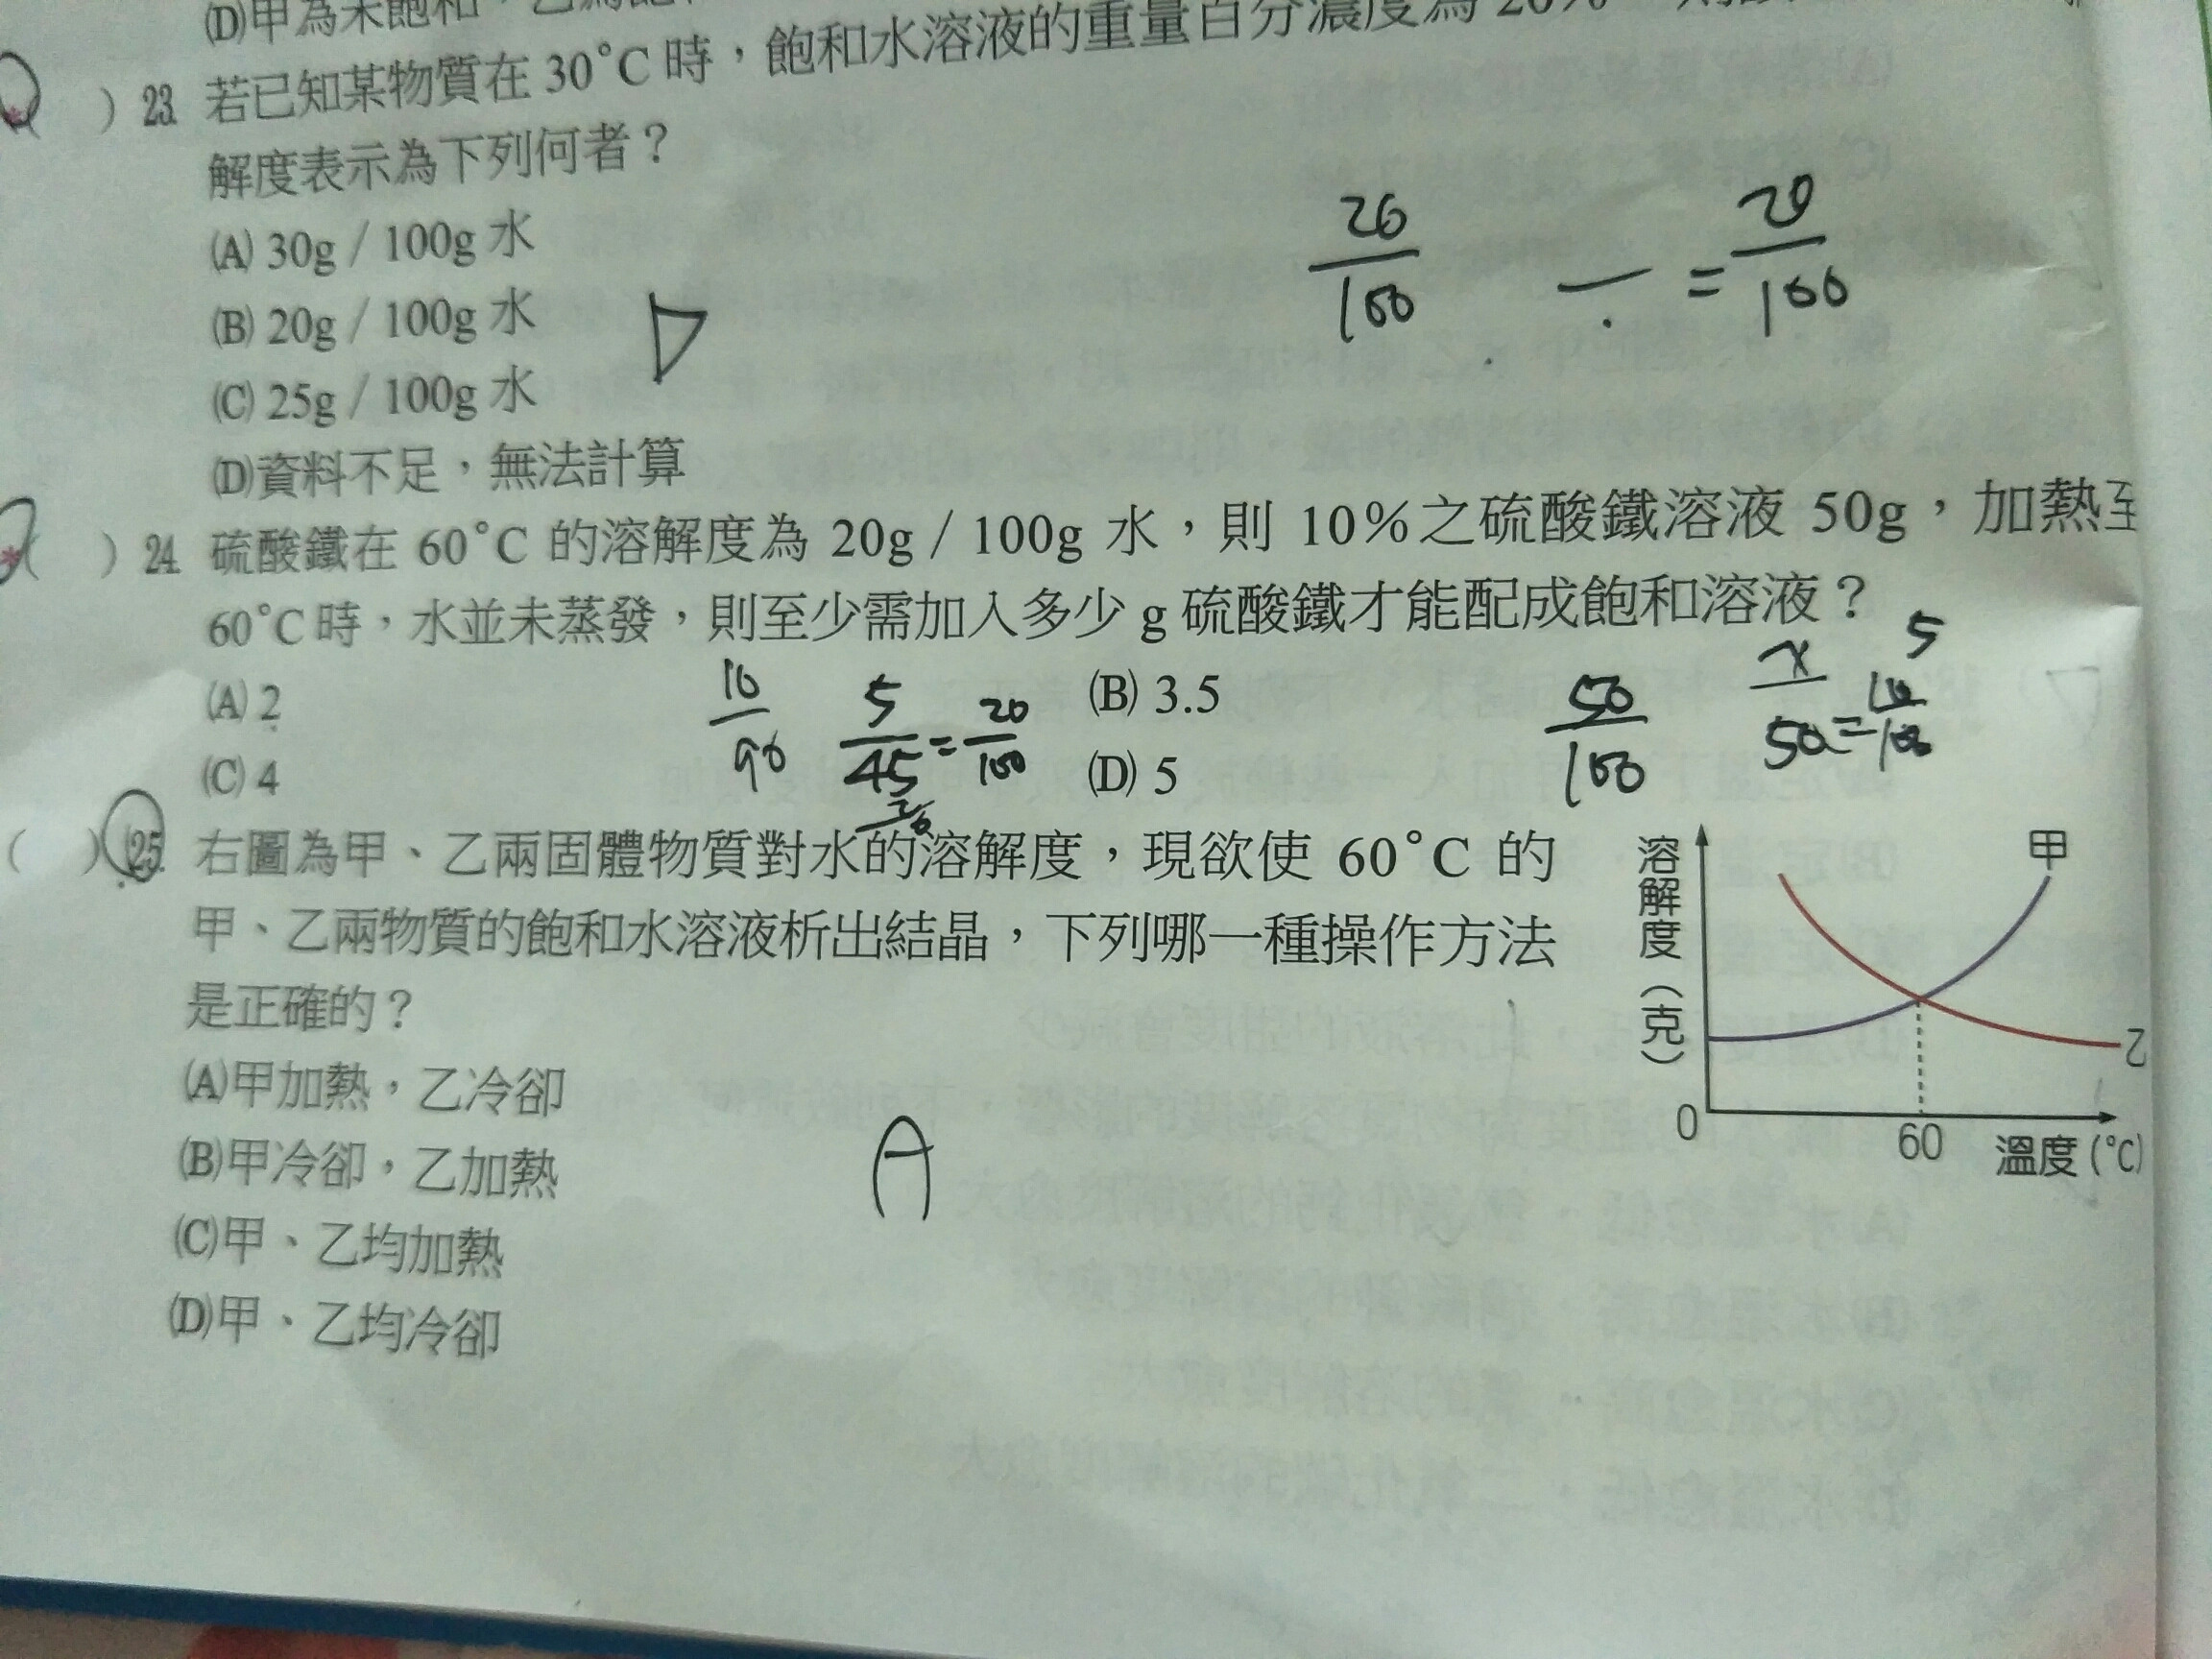 (D)甲為未飽和，乙為
( )23. 若已知某物質在 30°C 時，飽和水溶液的重量百分濃度為 20%，則
解度表示為下列何者？
(A) 30g / 100g 水
(B) 20g / 100g 水
(C) 25g / 100g 水
(D)資料不足，無法計算
D
20/100
— = 20/100
( )24. 硫酸鐵在 60°C 的溶解度為 20g / 100g 水，則 10%之硫酸鐵溶液 50g，加熱至
60°C 時，水並未蒸發，則至少需加入多少 g 硫酸鐵才能配成飽和溶液？
(A) 2
(B) 3.5
(C) 4
(D) 5
10/90
5/45 = 20/100
50/100
x/50 = 10/100
5
( )25. 右圖為甲、乙兩固體物質對水的溶解度，現欲使 60°C 的
甲、乙兩物質的飽和水溶液析出結晶，下列哪一種操作方法
是正確的？
(A)甲加熱，乙冷卻
(B)甲冷卻，乙加熱
(C)甲、乙均加熱
(D)甲、乙均冷卻
A
溶解度（克）
甲
乙
0
60
溫度(°C)